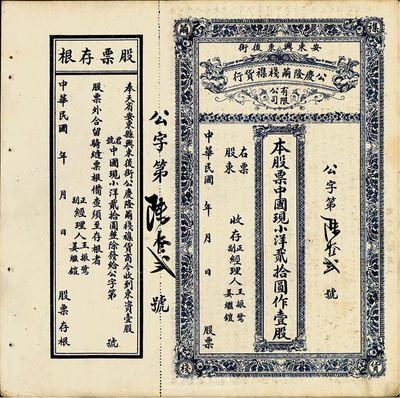 安東興東後街
公慶隆繭棧雜貨行
有限公司
公字第 號
本股票中國現小洋貳拾圓作壹股
右票 收存
股東
正經理人王振鷺
副經理人姜繼鎧
中華民國 年 月 日 股票
公字第 號
股票存根
奉天省安東縣興東後街公慶隆繭棧雜貨商今收到東資壹股
君號中國現小洋貳拾圓整除發給公字第 號
股票外合留騎縫票根備查須至存根者
正經理人王振鷺
副經理人姜繼鎧
中華民國 年 月 日 股票存根